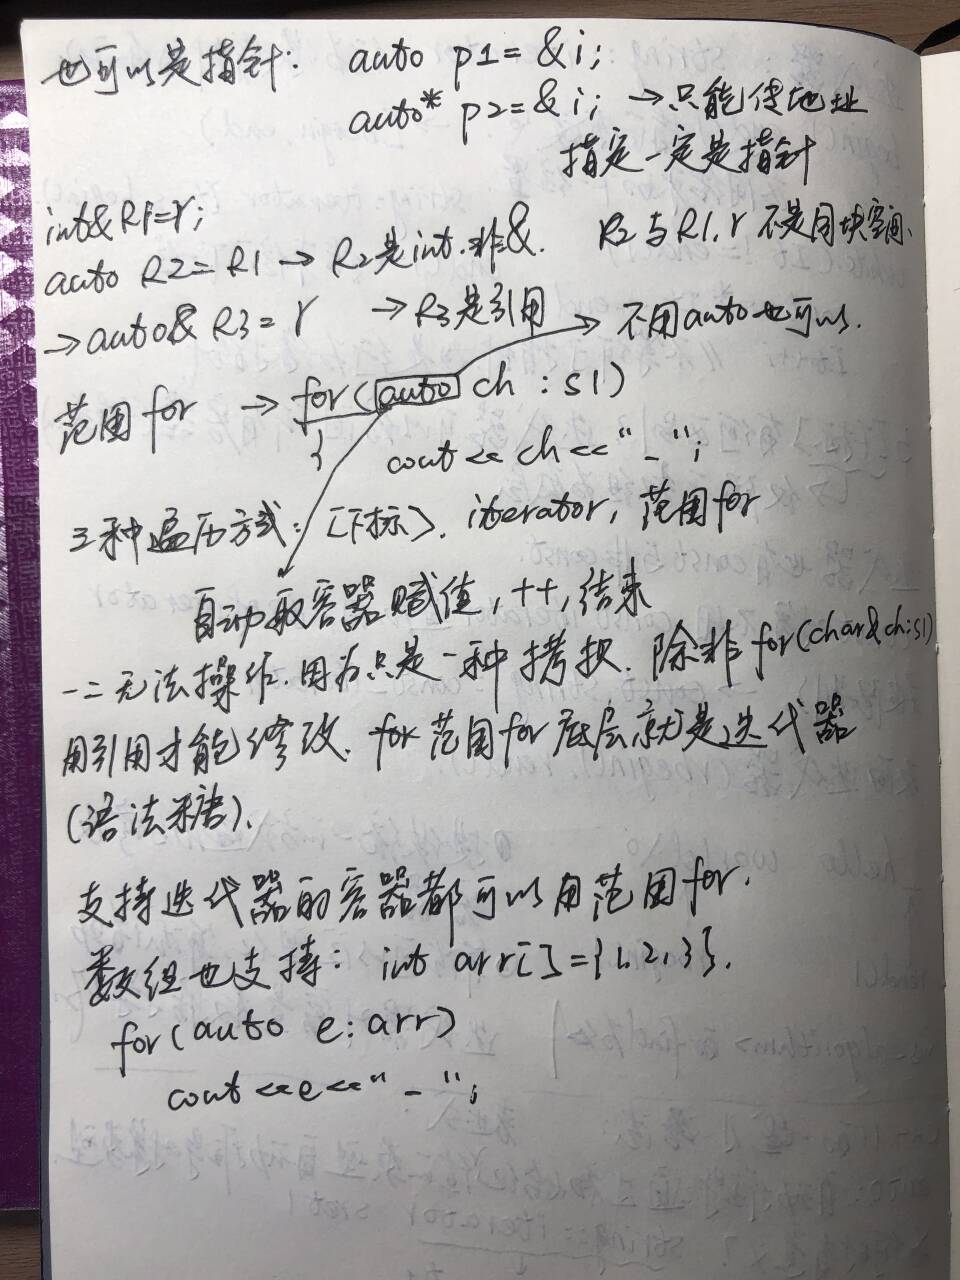 也可以是指针: auto p1 = &i;
auto* p2 = &i; →只能传地址
指定一定是指针
int& R1=r;
auto R2=R1 → R2是int.非&. R2与R1,r不是同块空间.
→auto& R3 = r →R3是引用 → 不用auto也可以.
范围for → for(auto ch : s1)
{ cout << ch << " _ ";
三种遍历方式: [下标], iterator, 范围for
自动取容器赋值, ++, 结束
一二无法操作.因为只是一种拷贝. 除非for(char& ch:s1)
用引用才能修改. for 范围for底层就是迭代器
(语法糖).
支持迭代器的容器都可以用范围for.
数组也支持: int arr[]={1,2,3}.
for(auto e:arr)
cout <<e<<" _ ";